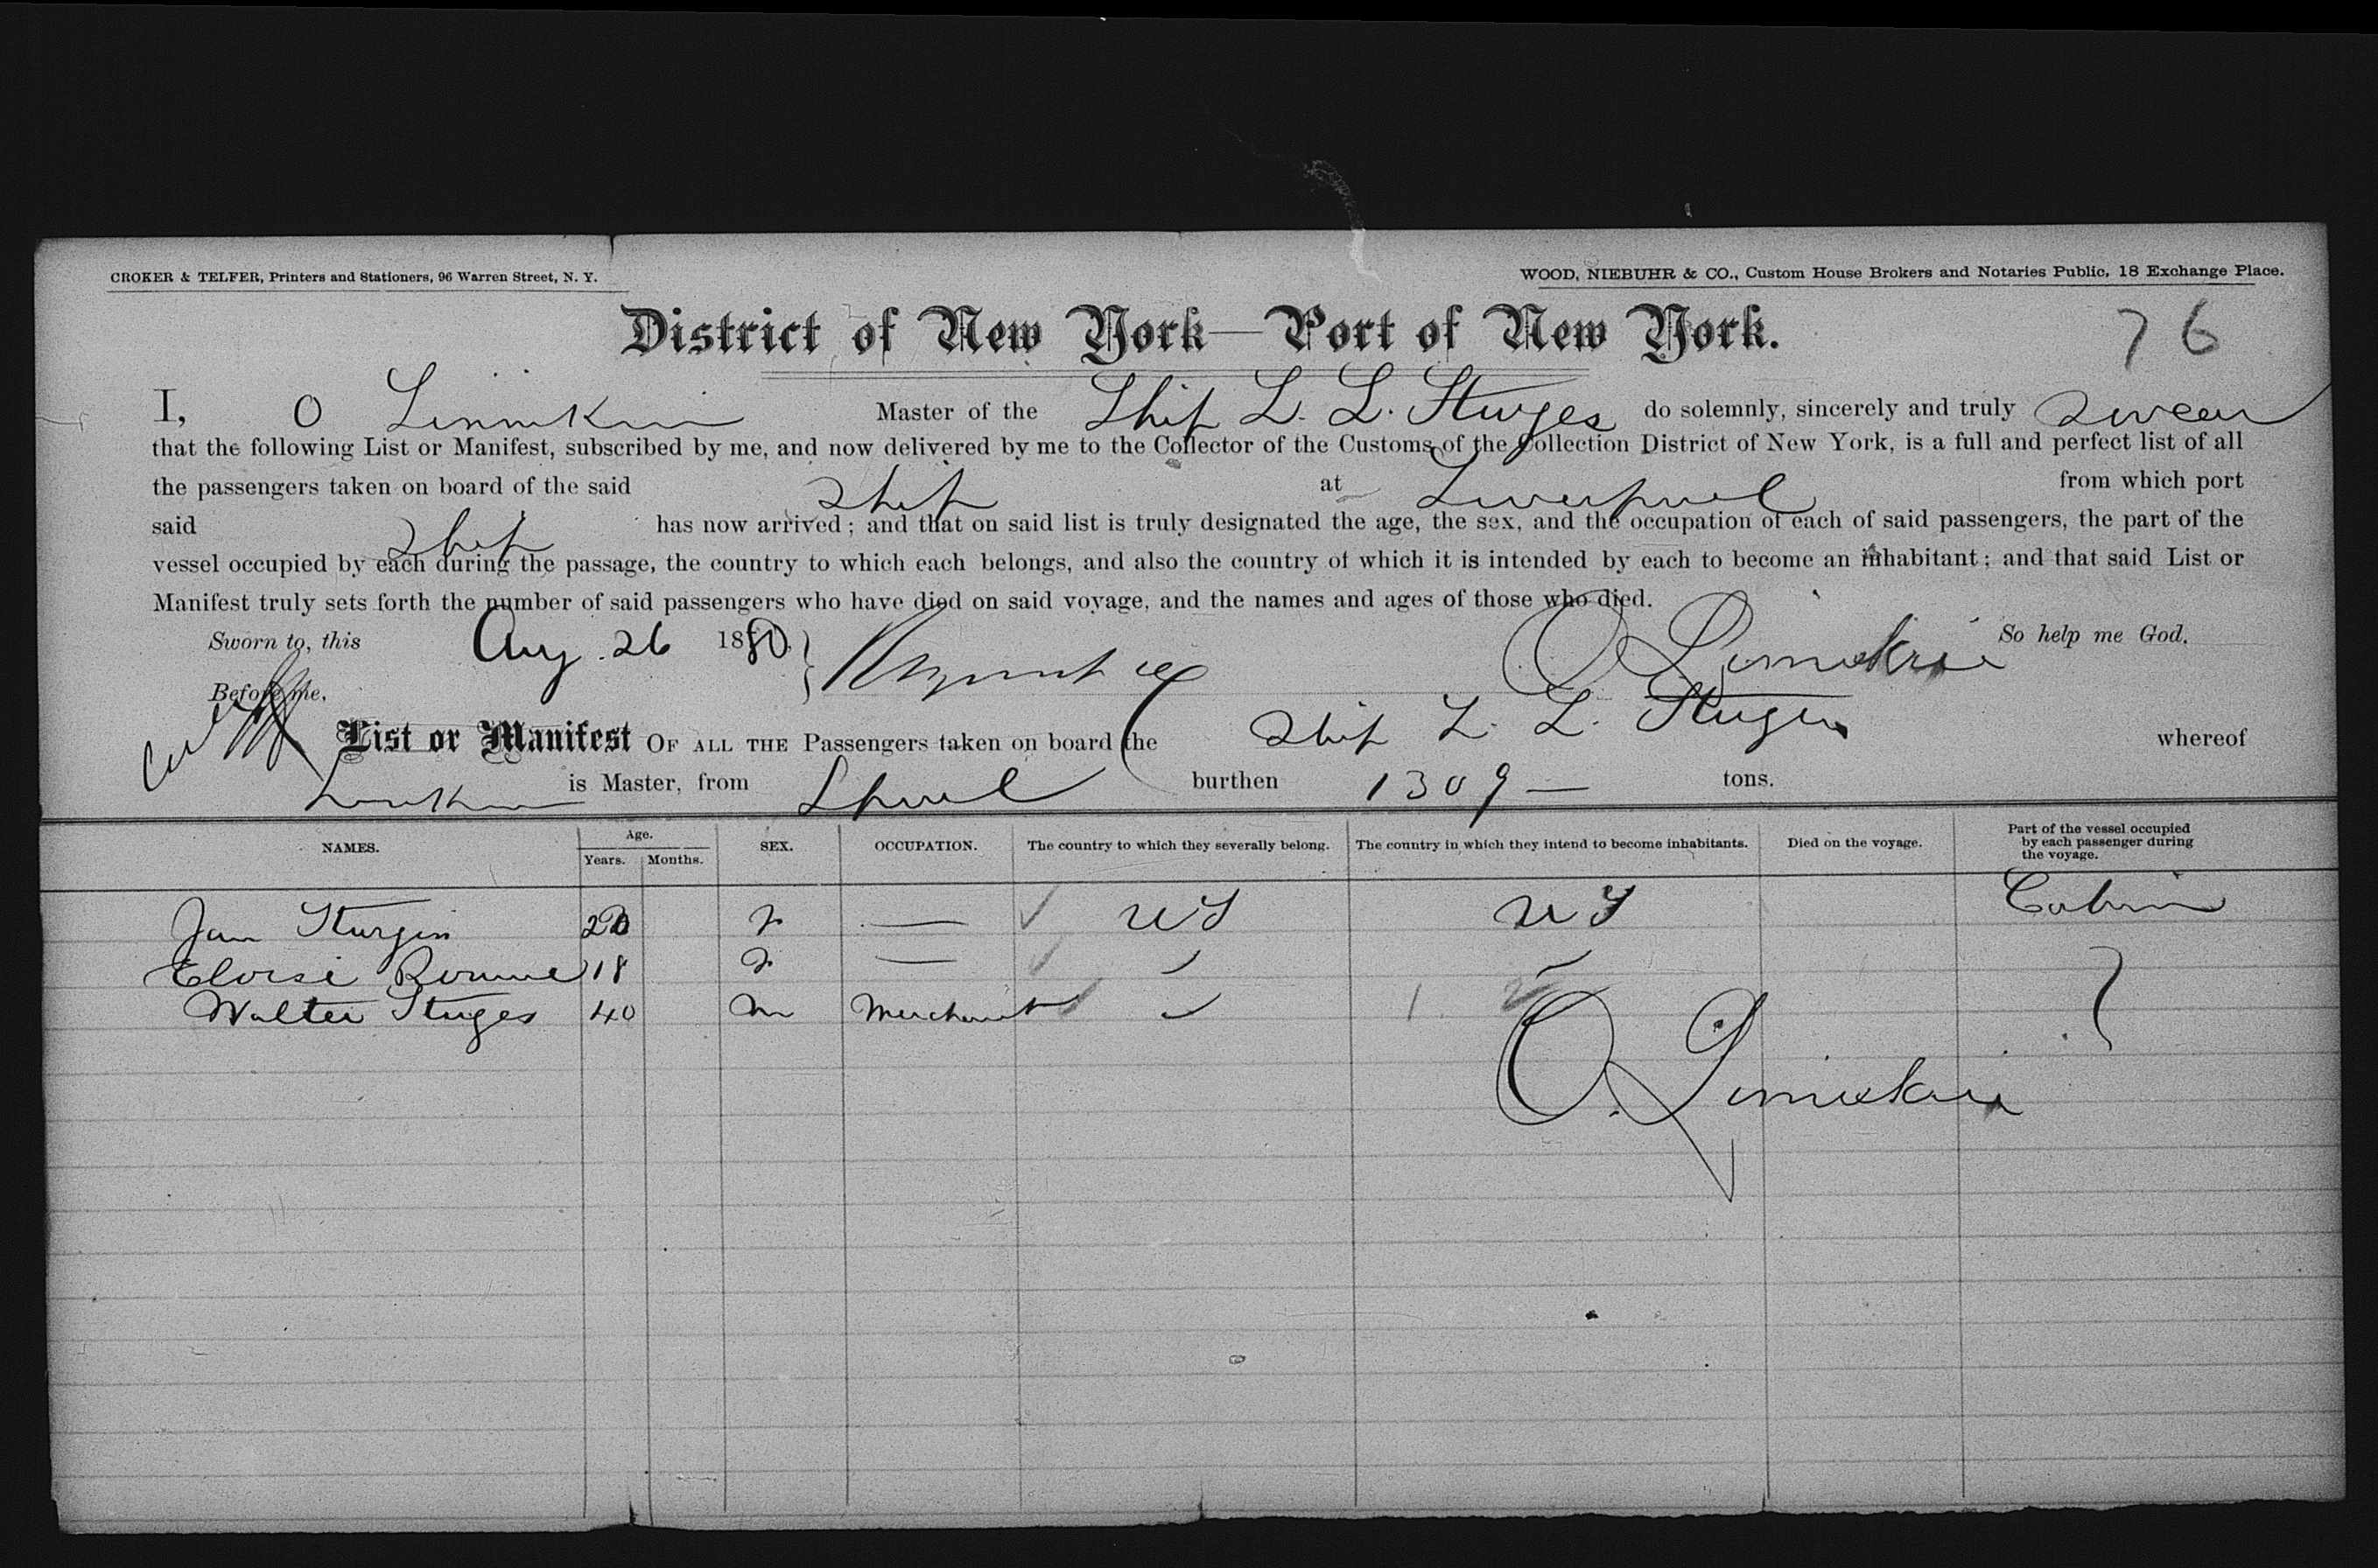 CROKER & TELFER, Printers and Stationers, 96 Warren Street, N. Y.
WOOD, NIEBUHR & CO., Custom House Brokers and Notaries Public, 18 Exchange Place.
District of New York—Port of New York.
76
I, O Linnikin Master of the Ship L. L. Sturges do solemnly, sincerely and truly swear
that the following List or Manifest, subscribed by me, and now delivered by me to the Collector of the Customs of the Collection District of New York, is a full and perfect list of all
the passengers taken on board of the said ship at Liverpool from which port
said ship has now arrived; and that on said list is truly designated the age, the sex, and the occupation of each of said passengers, the part of the
vessel occupied by each during the passage, the country to which each belongs, and also the country of which it is intended by each to become an inhabitant; and that said List or
Manifest truly sets forth the number of said passengers who have died on said voyage, and the names and ages of those who died.
Sworn to, this Aug. 26 1880. O Linnikin So help me God.
Before me,
List or Manifest OF ALL THE Passengers taken on board the Ship L. L. Sturges whereof
Linnikin is Master, from Lpool burthen 1309 — tons.
NAMES. Age. Years. Months. SEX. OCCUPATION. The country to which they severally belong. The country in which they intend to become inhabitants. Died on the voyage. Part of the vessel occupied by each passenger during the voyage.
Jan Sturges 20 F — US US Cabin
Eloise 18 F —
Walter Sturges 40 M Merchant
O. Linnikin